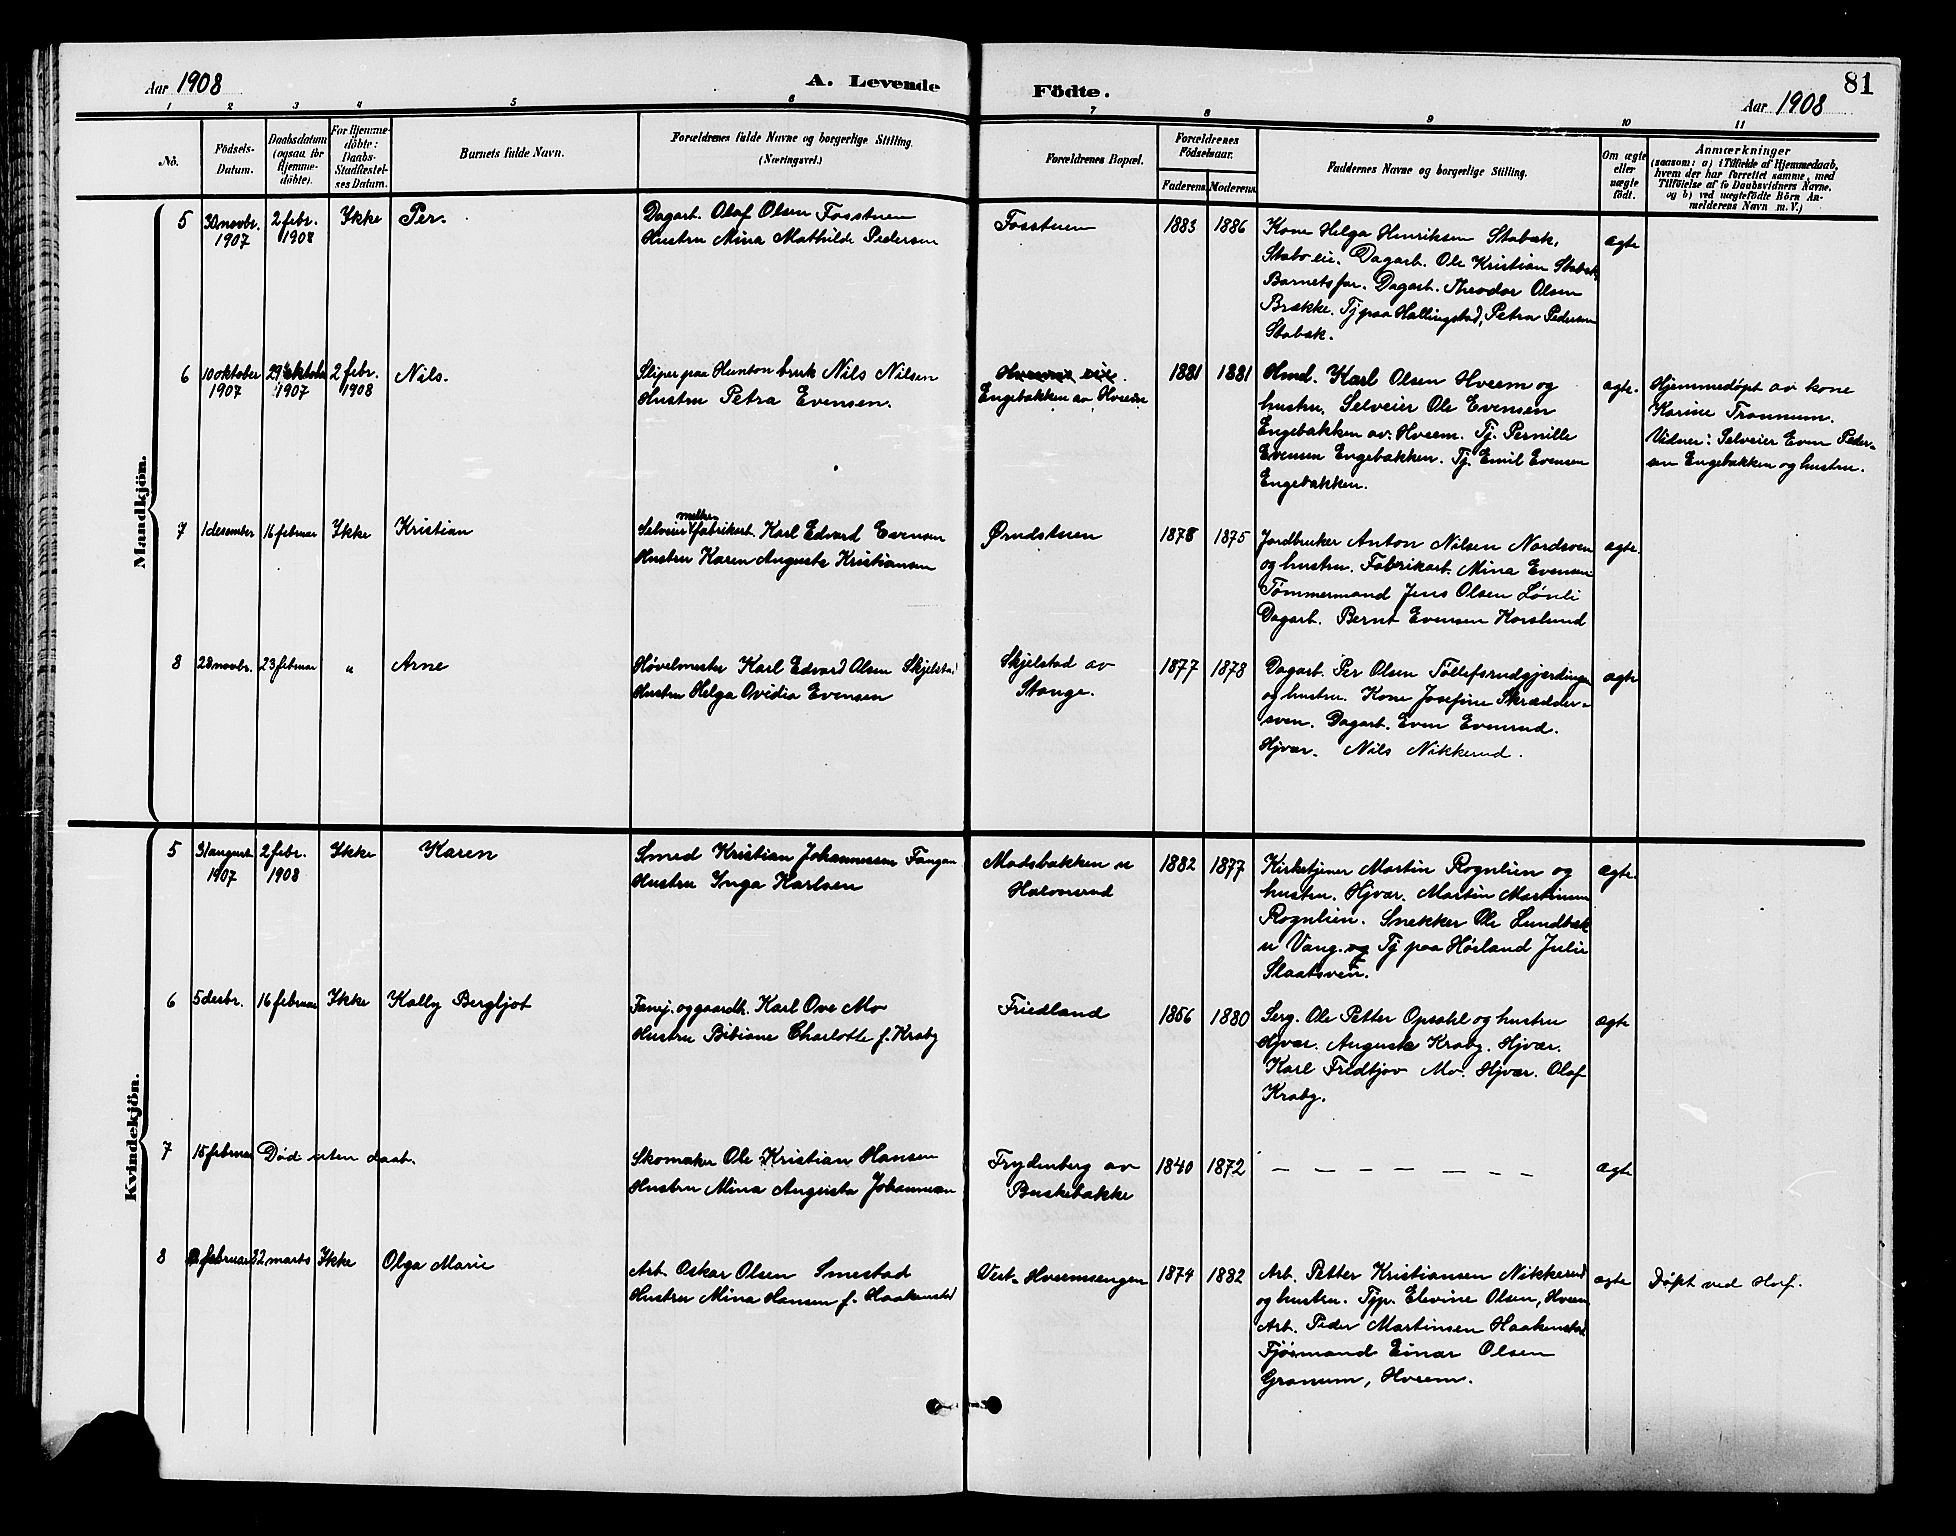 Aar 1908
A. Levende
Födte.
Aar 1908
81
1 2 3 4 5 6 7 8 9 10 11
No.
Födsels-
Datum.
Daabsdatum
(ogsaa for
Hjemme-
döbte).
For Hjemme-
döbte:
Daabs-
Stadfæstel-
ses Datum.
Barnets fulde Navn.
Forældrenes fulde Navne og borgerlige Stilling.
(Næringsvei.)
Forældrenes Bopæl.
Forældrenes
Födselsaar.
Faderens.
Moderens.
Faddernes Navne og borgerlige Stilling.
Om ægte
eller
uægte
födt.
Anmærkninger
(saasom: a) i Tilfælde af Hjemmedaab,
hvem der har forrettet samme, med
Tilföielse af to Daabsvidners Navne,
og b) ved uægtefödte Börn An-
melderens Navn m. V.)
Mandkjön.
5
30 novbr.
1907
2 febr.
1908
Ikke
Per.
Dagarb. Olaf Olsen Fosstuen
Hustru Mina Mathilde Pedersen
Fosstuen
1883
1886
Kone Helga Henriksen Stabæk,
Stabo eie. Dagarb. Ole Kristian Stabæk
Barnets far. Dagarb. Theodor Olsen
Brække. Tj paa Hallingstad, Petra Pedersen
Stabæk.
ægte
6
10 oktober
1907
29 oktober
1907
2 febr.
1908
Nils.
Sliper paa Hunton bruk Nils Nilsen
Hustru Petra Evensen.
Hveem eie.
Engebakken av Hveem
1881
1881
Hmd. Karl Olsen Hveem og
hustru. Selveier Ole Evensen
Engebakken av Hveem. Tj. Pernille
Evensen Engebakken. Tj. Emil Evensen
Engebakken.
ægte.
Hjemmedøpt av kone
Karine Trannum.
Vidner: Selveier Even Peder-
sen Engebakken og hustru.
7
1 desember
16 februar
Ikke
Kristian
Selveier melke
fabrikarb. Karl Edvard Evensen
Hustru Karen Auguste Kristiansen
Ørudstuen
1878
1875
Jordbruker Anton Nilsen Nordsven
og hustru. Fabrikarb. Mina Evensen
Tømmermand Jens Olsen Lønli
Dagarb. Bernt Evensen Korslund
ægte.
8
28 novbr.
23 februar
"
Arne
Høvelmester Karl Edvard Olsen Skjelstad
Hustru Helga Ovidia Evensen
Skjelstad av
Stange.
1877
1878
Dagarb. Per Olsen Tollefsrudgjerdingen
og hustru. Kone Josefine Skrædder-
sven. Dagarb. Even Evenrud.
Hjvær. Nils Nikkerud.
ægte
Kvindekjön.
5
31 august
1907
2 febr.
1908
Ikke
Karen
Smed Kristian Johannessen Fangen
Hustru Inga Karlsen
Madsbakken u
Halvorsrud
1882
1877
Kirketjener Martin Rognlien og
hustru. Hjvær. Martin Martinsen
Rognlien. Snekker Ole Lundbæk
u Vang. og Tj paa Hørland Julie
Slaatsveen.
ægte.
6
5 desbr.
16 februar
Ikke
Kally Bergljot
Fanej. og gaardb. Karl Ove Mo
Hustru Bibiane Charlotte f. Kraby
Friedland
1856
1880
Serg. Ole Petter Opsahl og hustru
Hjvær. Augusta Kraby. Hjvær.
Karl Fredtjov Mo. Hjvær. Olaf
Kraby.
ægte
7
15 februar
Død uten daab.
Skomaker Ole Kristian Hansen
Hustru Mina Augusta Johannesen
Frydenberg av
Buskebakke
1840
1872
— — — — — — —
ægte
8
februar
22 marts
Ikke
Olga Marie
Arb. Oskar Olsen Smestad
Hustru Mina Hansen f. Haakenstad
Vest-Hveemsengen
1874
1882
Arb. Petter Kristiansen Nikkerud
og hustru. Tjp. Elevine Olsen, Hveem
Arb. Peder Martinsen Haakenstad
Fjøsmand Einar Olsen
Granum, Hveem.
ægte
Døpt ved Hof.